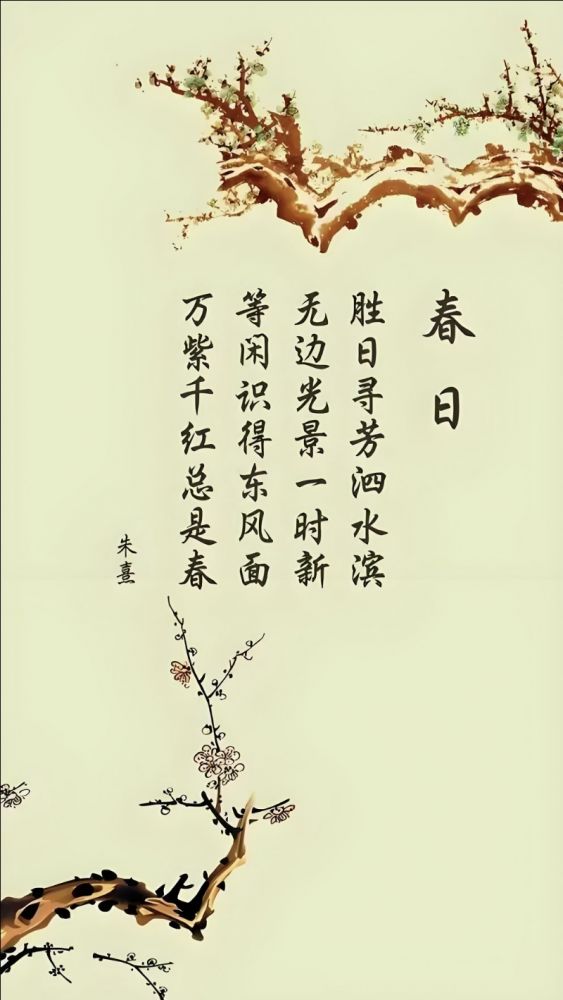 春日
胜日寻芳泗水滨
无边光景一时新
等闲识得东风面
万紫千红总是春
朱熹